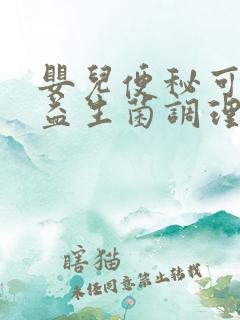 嬰兒便秘可
益生菌調理
瞎猫
未任同意禁止转载